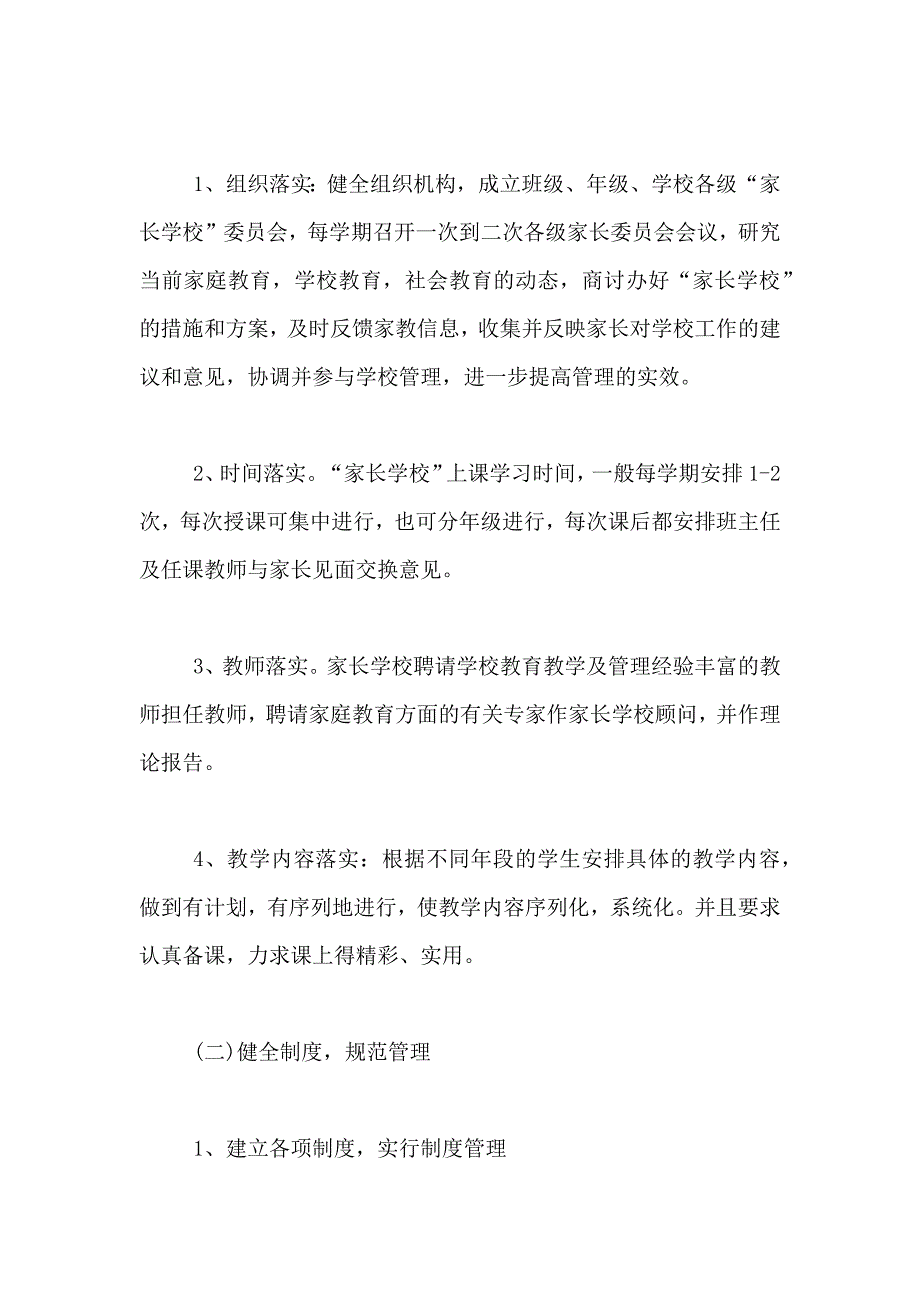 1、组织落实：健全组织机构，成立班级、年级、学校各级“家
长学校”委员会，每学期召开一次到二次各级家长委员会会议，研究
当前家庭教育，学校教育，社会教育的动态，商讨办好“家长学校”
的措施和方案，及时反馈家教信息，收集并反映家长对学校工作的建
议和意见，协调并参与学校管理，进一步提高管理的实效。
2、时间落实。“家长学校”上课学习时间，一般每学期安排 1-2
次，每次授课可集中进行，也可分年级进行，每次课后都安排班主任
及任课教师与家长见面交换意见。
3、教师落实。家长学校聘请学校教育教学及管理经验丰富的教
师担任教师，聘请家庭教育方面的有关专家作家长学校顾问，并作理
论报告。
4、教学内容落实：根据不同年段的学生安排具体的教学内容，
做到有计划，有序列地进行，使教学内容序列化，系统化。并且要求
认真备课，力求课上得精彩、实用。
(二)健全制度，规范管理
1、建立各项制度，实行制度管理